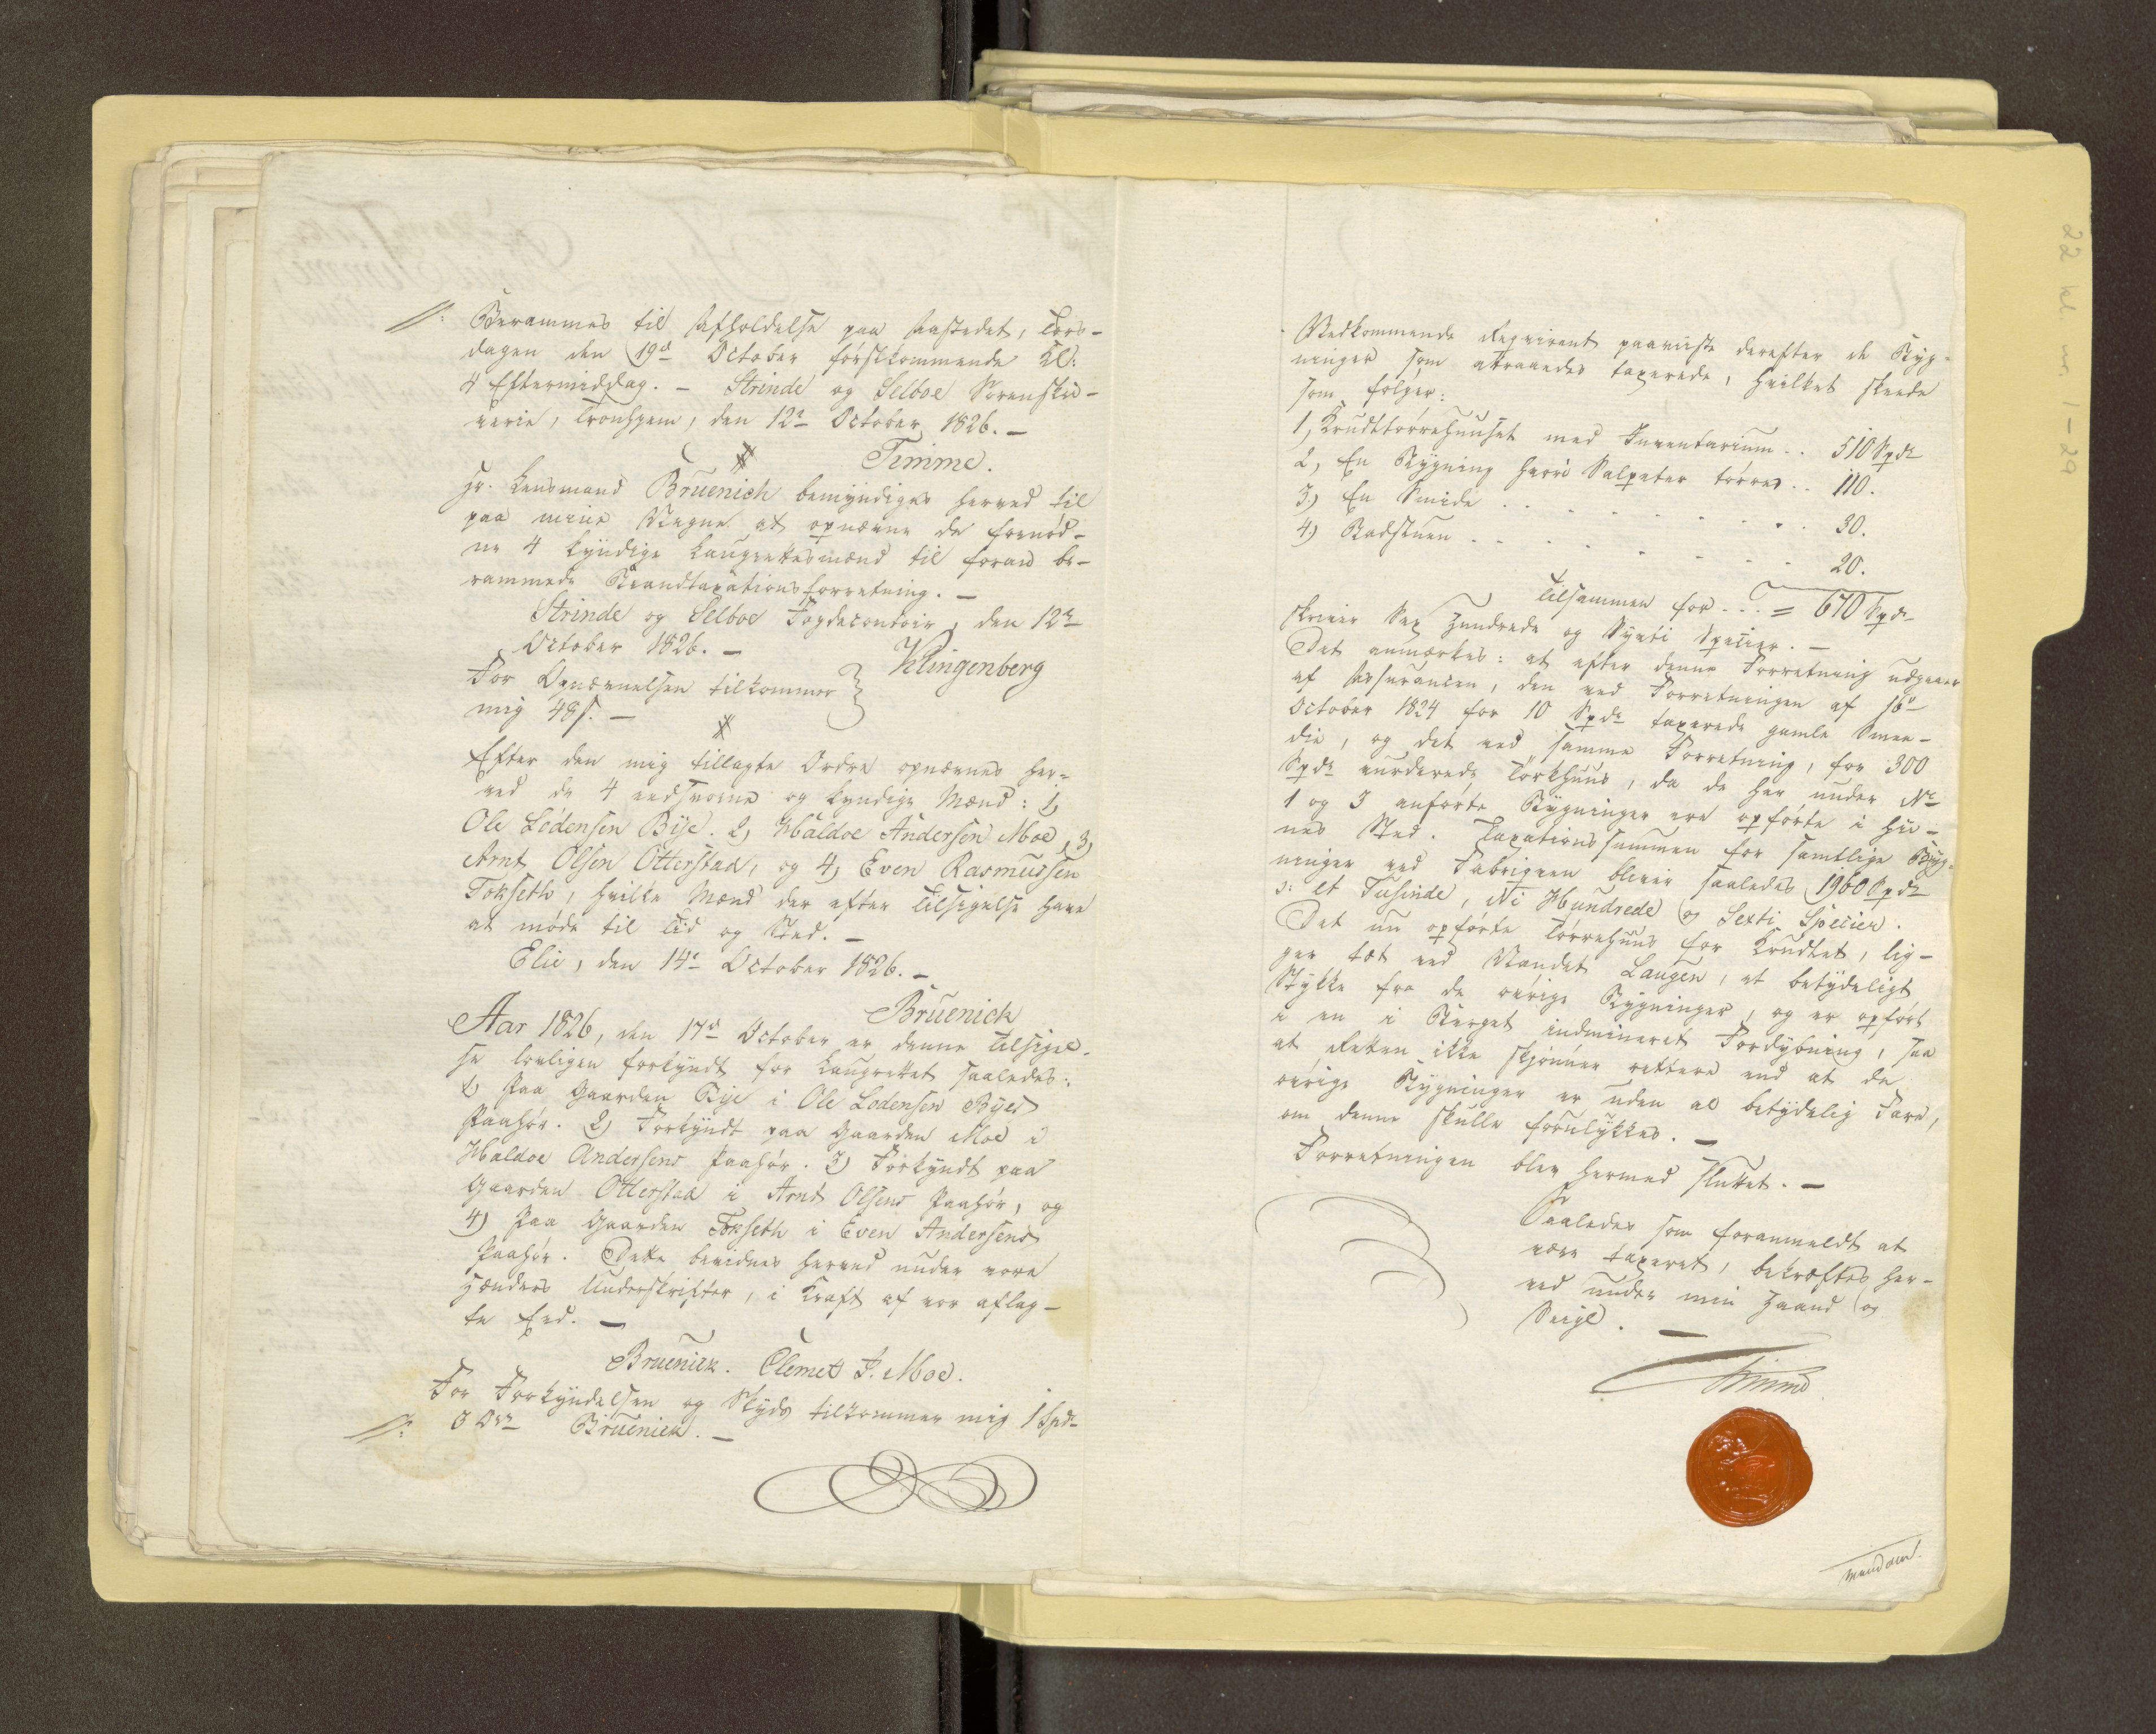 Berammes til Afholdelse paa Aastedet, Tors-
dagen den 19d October førstkommende Kl:
4 Eftermiddag. - Strinde og Selboe Sorenskri-
verie, Tronhjem, den 12e October 1826. -
Timme.
Hr. Lensmand Brüenich bemyndiges herved til
paa mine Vegne at opnævne de fornød-
ne 4 kyndige Laugrettesmænd til foran be-
rammede Brandtaxationsforretning. -
Strinde og Selboe Fogdecontoir, den 12te
October 1826. -
Klingenberg
For Opnævnelsen tilkommer
mig 48 s. -
Efter den mig tillagte Ordre opnævnes her-
ved de 4 eedsvorne og kyndige Mænd: 1,
Ole Lodensen Bije. 2, Haldoe Andersen Moe, 3,
Arnt Olsen Otterstad, og 4, Even Rasmussen
Tokseth, hvilke Mænd der efter Tilsigelse have
at møde til Tid og Sted. -
Elie, den 14e October 1826. -
Brüenich
Aar 1826, den 17d October er denne Tilsigel-
se lovligen forkyndt for Laugrettet saaledes:
1, Paa Gaarden Bije i Ole Lodensen Byes
Paahør. 2, Forkyndt paa Gaarden Moe i
Haldoe Andersens Paahør. 3, Forkyndt paa
Gaarden Otterstad i Arnt Olsens Paahør, og
4, Paa Gaarden Tokseth i Even Andersens
Paahør. Dette bevidnes herved under vore
Hænders Underskrifter, i Kraft af vor aflag-
te Eed. -
Brüenich. Clemet J. Moe.
For Forkyndelsen og Skyds tilkommer mig 1 Spd
3 Ort Brüenich. -
Vedkommende Reqvirent paaviiste derefter de Byg-
ninger som attraaedes taxerede, hvilket skeede
som følger:
1, Krudttørrehuuset med Inventarium .. 510 Spd
2, En Bygning hvori Salpeter tørres .. 110.
3, En Smide . . . . . . . . 30.
4, Badstuen . . . . . . . . 20.
Tilsammen for . . . = 670 Spd
skriver Sex Hundrede og Syvti Specier. -
Det anmærkes: at efter denne Forretning udgaaer
af Assurancen, den ved Forretningen af 16d
October 1824 for 10 Spd taxerede gamle Smee-
die, og det ved samme Forretning, for 300
Spd vurderede Tørkhuus, da de her under No
1 og 3 anførte Bygninger ere opførte i hii-
nes Sted. Taxationssummen for samtlige Byg-
ninger ved Fabriqven bliver saaledes 1960 Spd
ɔ: et Tusinde, Ni Hundrede og Sexti Specier.
Det nu opførte Tørrehuus for Krudtet, lig-
ger tæt ved Vandet Laugen, et betydeligt
Stykke fra de øvrige Bygninger, og er opført
i en i Bierget indmineret Fordybning, saa
at Retten ikke skjønner rettere end at de
øvrige Bygninger er uden al betydelig Fare,
om denne skulle forulykkes. -
Forretningen blev hermed sluttet. -
Saaledes som foranmeldt at
være taxeret, bekræftes her-
ved under min Haand og
Seigl. -
Timme
22 kl nr 1-29